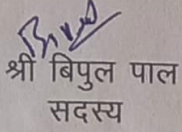 श्री बिपुल पाल
सदस्य